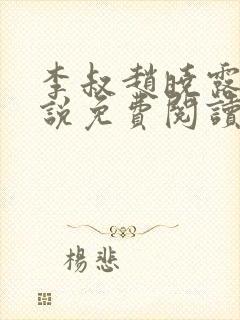 李叔趙曉露
說免費閱讀
楊悲